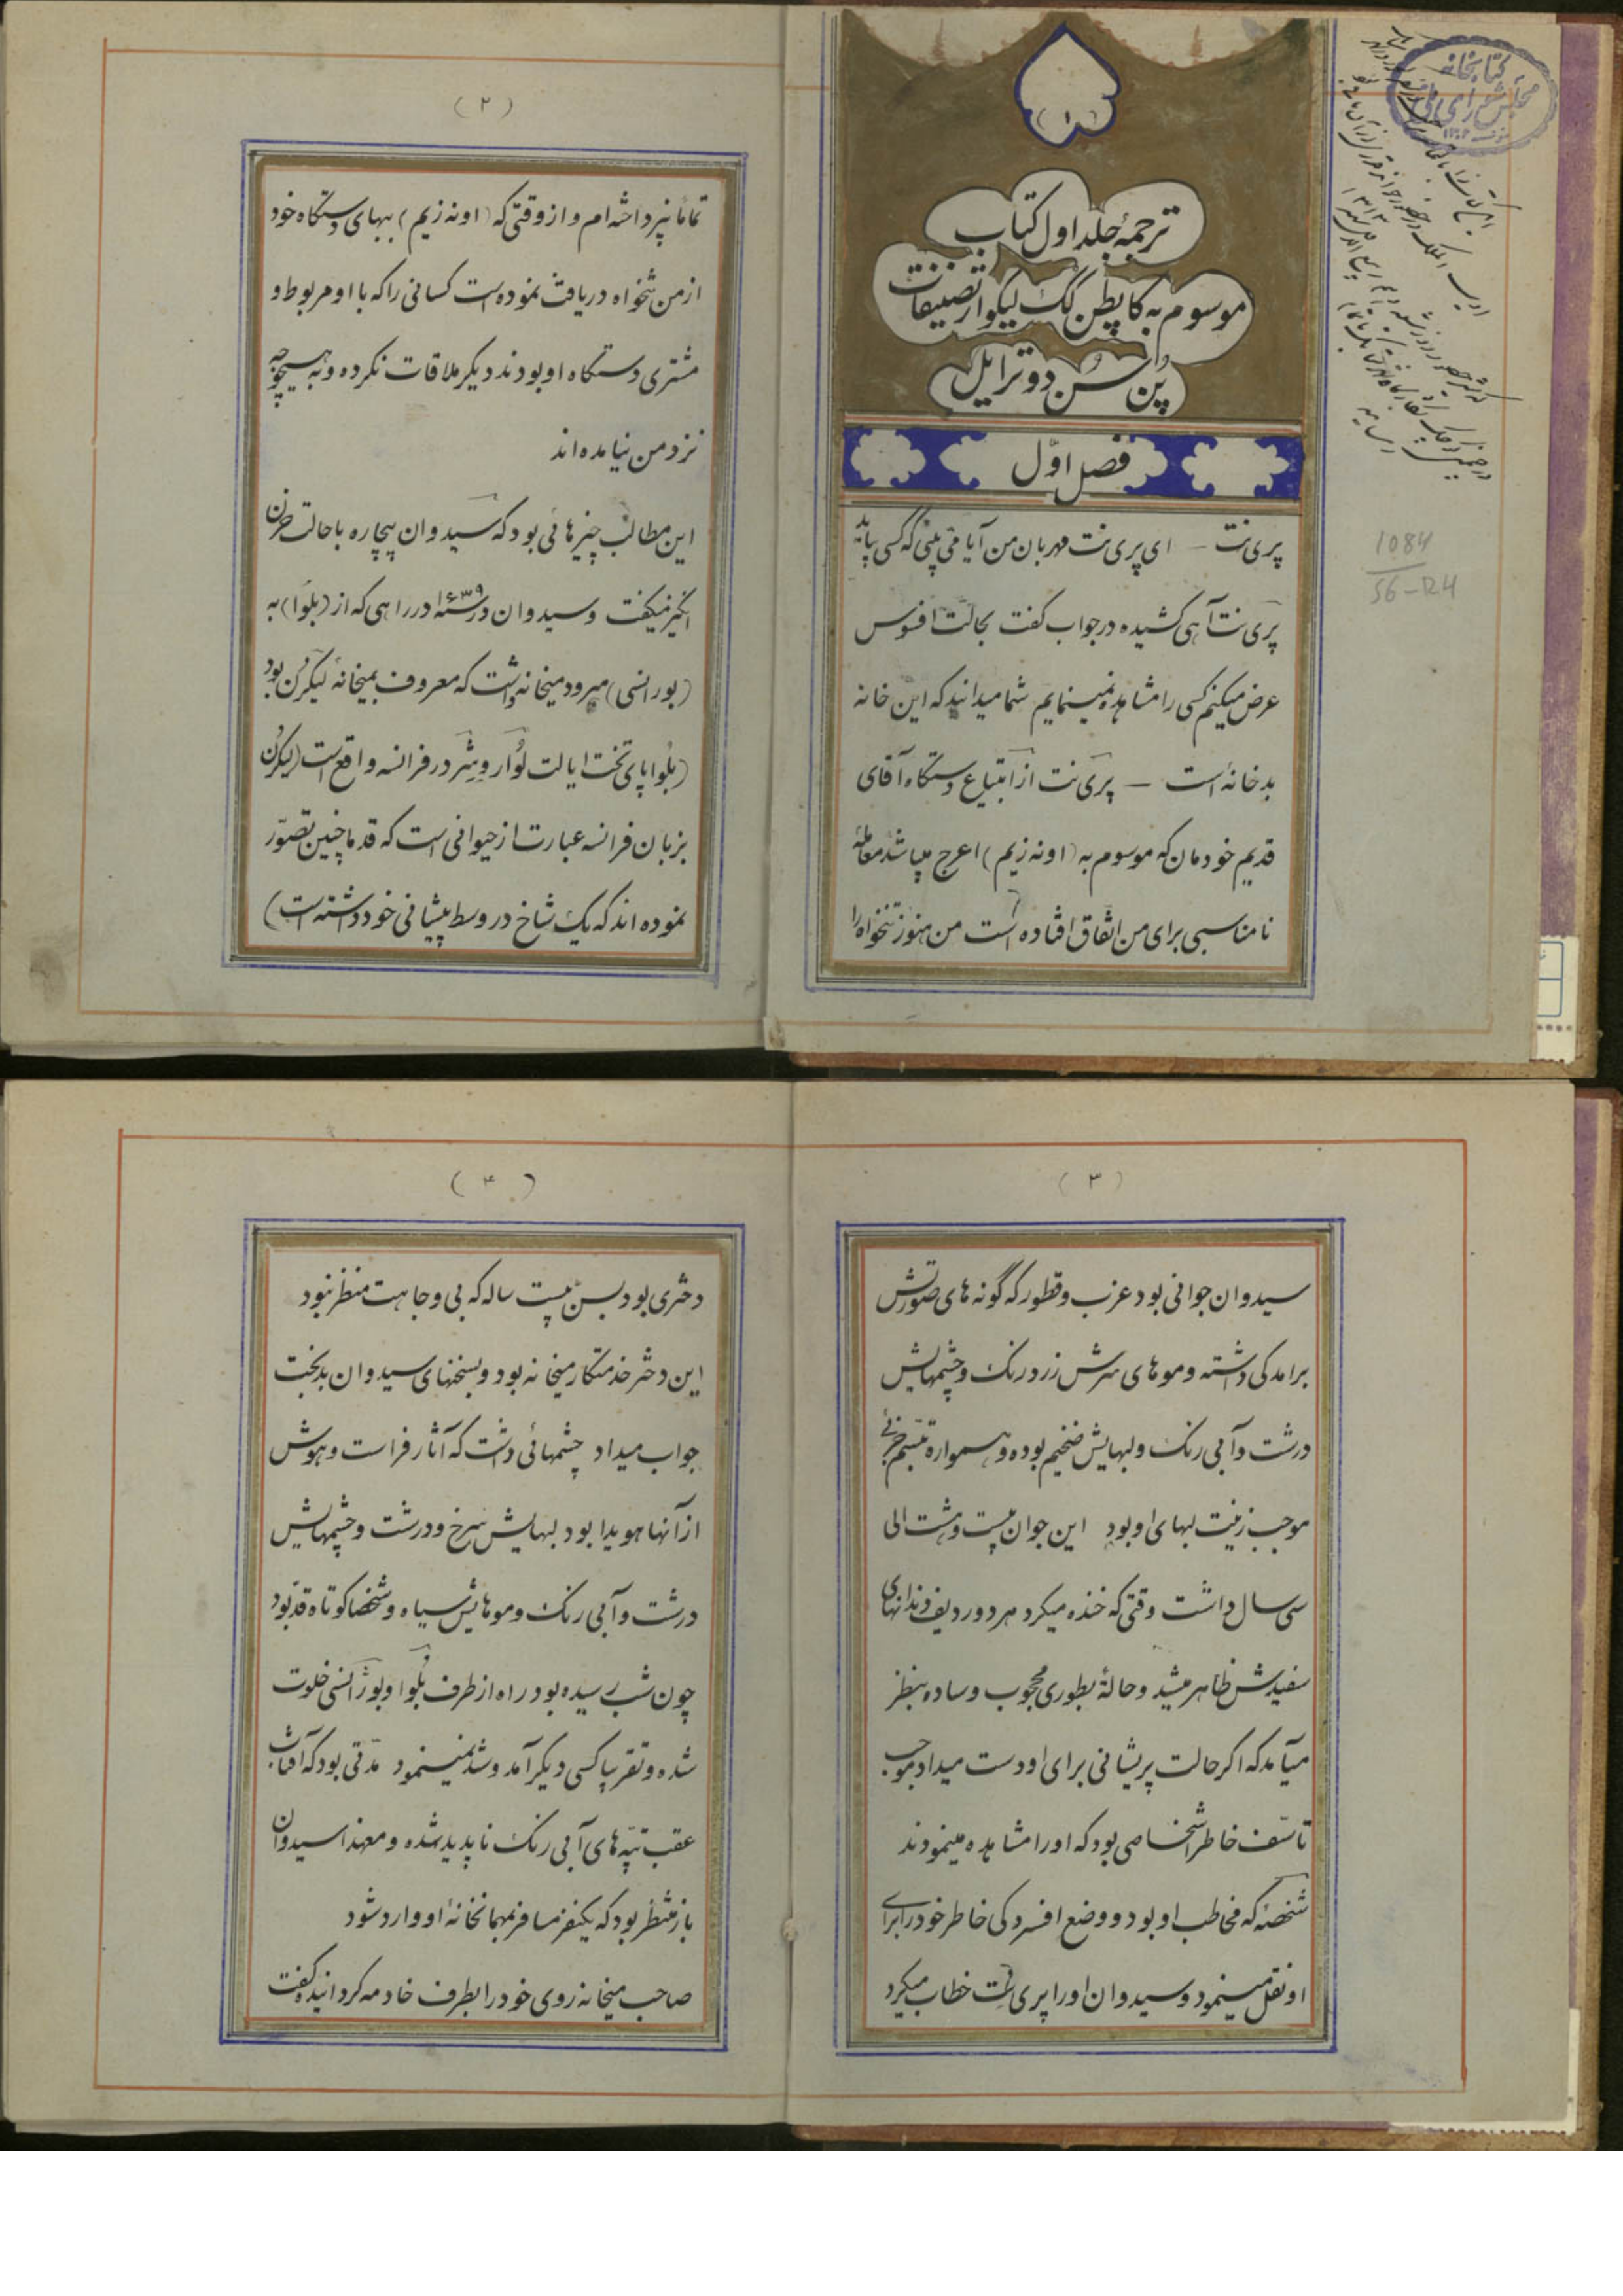 (۱)
ترجمهٔ جلد اول کتاب
موسوم به کاپطن لک لیکوار تصنیفات
پن سن دو ترایل
فصل اوّل
پری نت – ای پری نت مهربان من آیا می بینی که کسی بیاید
پری نت آهی کشیده در جواب گفت بحالت افسوس
عرض میکنم کسی را مشاهده نمینمایم شما میدانید که این خانه
بد خانه است – پری نت از ابتیاع دستگاه آقای
قدیم خودمان که موسوم به (اونه زیم) اعرج میباشد معاملهٔ
نامناسبی برای من اتفاق افتاده است من هنوز تنخواه را
کتابخانه
مجلس شورای ملی
1084
56-R4
(۲)
تماماً نپرداخته ام و از وقتی که (اونه زیم) ببهای دستگاه خود
از من تنخواه دریافت نموده است کسانی را که با او مربوط و
مشتری دستگاه او بودند دیگر ملاقات نکرده و به هیچوجه
نزد من نیامده اند
این مطالب چیزهائی بود که سیدوان بیچاره با حالت حزن
انگیز میگفت و سیدوان در سنهٔ ۱۶۳۹ در راهی که از (بلوا) به
(بورانسی) میرود میخانه داشت که معروف بمیخانهٔ لیکرن بود
(بلوا پای تخت ایالت لوار وشر در فرانسه واقع است (لیکرن
بزبان فرانسه عبارت از حیوانی است که قدما چنین تصوّر
نموده اند که یک شاخ در وسط پیشانی خود داشته است)
(۳)
سیدوان جوانی بود عزب و قطور که گونه های صورتش
برامدگی داشته و موهای سرش زرد رنگ و چشمهایش
درشت و آبی رنگ و لبهایش ضخیم بوده و همواره تبسّم حزنی
موجب زینت لبهای او بود این جوان بیست و هشت الی
سی سال داشت وقتی که خنده میکرد هر دو ردیف دندانهای
سفیدش ظاهر میشد و حالهٔ بطوری محجوب و ساده بنظر
میآمد که اگر حالت پریشانی برای او دست میداد موجب
تاسّف خاطر اشخاصی بود که او را مشاهده مینمودند
شخصهٔ که مخاطب او بود و وضع افسردگی خاطر خود را برای
او نقل مینمود و سیدوان او را پری نت خطاب میکرد
(۴)
دختری بود بسن بیست ساله که بی وجاهت منظر نبود
این دختر خدمتکار میخانه بود و بسخنهای سیدوان بدبخت
جواب میداد چشمهائی داشت که آثار فراست و هوش
از آنها هویدا بود لبهایش سرخ و درشت و چشمهایش
درشت و آبی رنگ و موهایش سیاه و شخصا کوتاه قد بود
چون شب رسیده بود راه از طرف بلوا و بوژانسی خلوت
شده و تقریبا کسی دیگر آمد و شد نمینمود مدّتی بود که آفتاب
عقب تپّه های آبی رنگ ناپدید شده و معهذا سیدوان
باز منتظر بود که یکنفر مسافر بمهمانخانهٔ او وارد شود
صاحب میخانه روی خود را بطرف خادمه گردانیده گفت